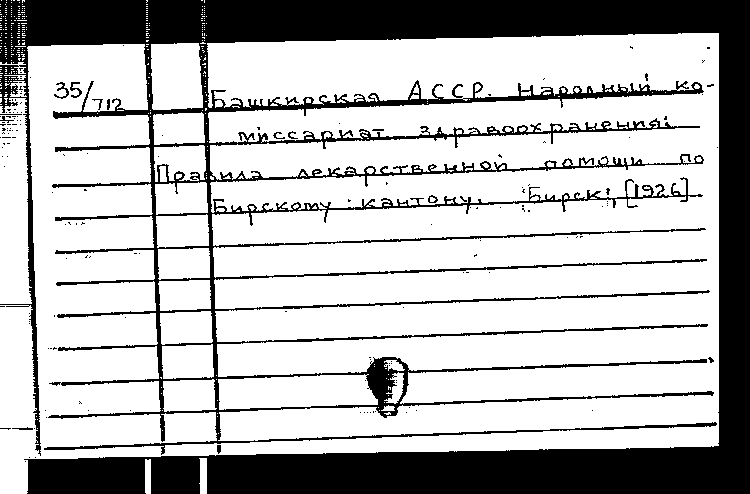 35/712 Башкирская АССР. Народный ко-
миссариат здравоохранения.
Правила лекарственной помощи по
Бирскому кантону. Бирск, [1926].